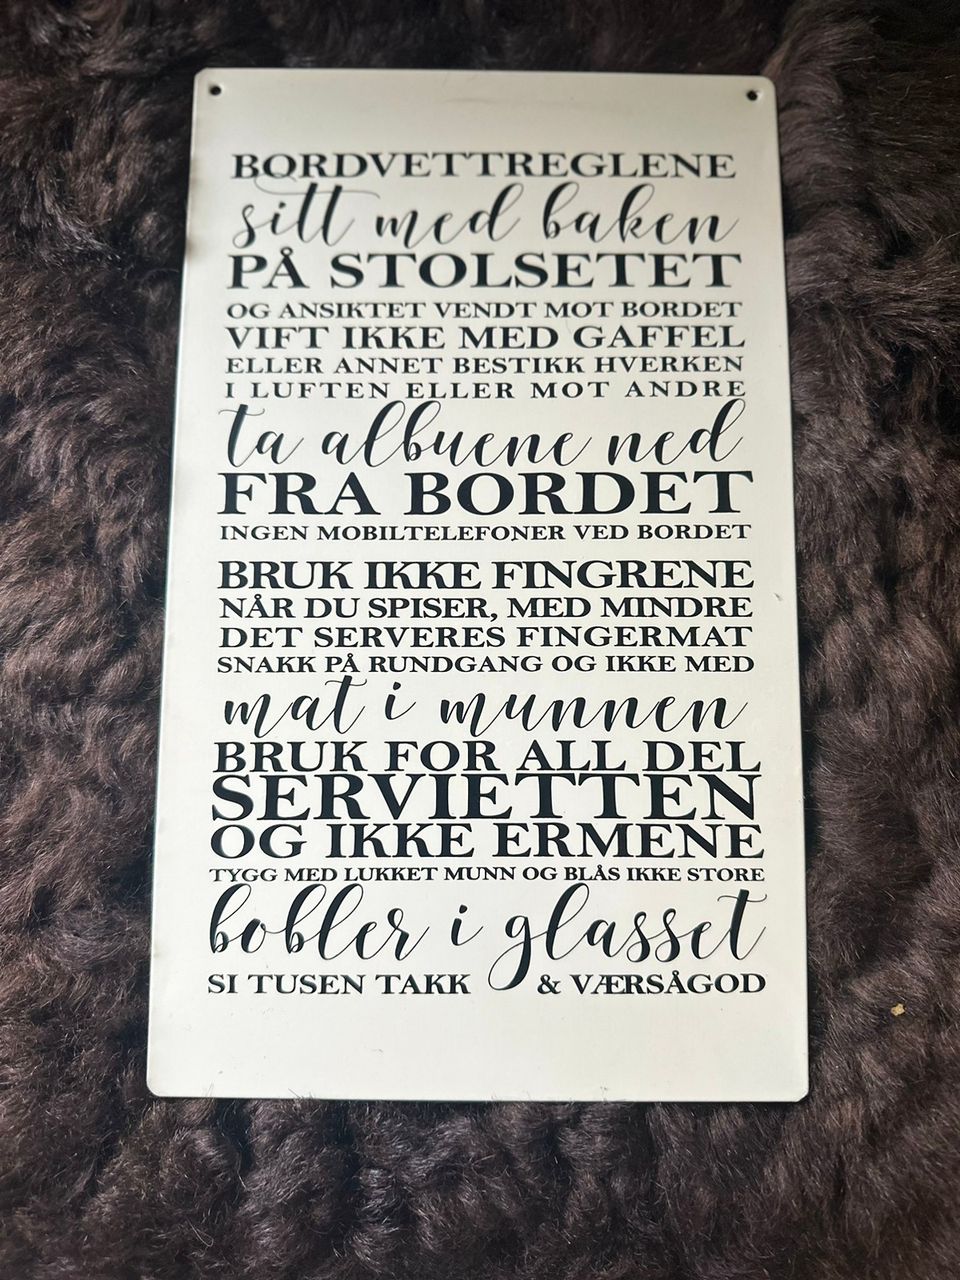 BORDVETTREGLENE
sitt med baken
PÅ STOLSETET
OG ANSIKTET VENDT MOT BORDET
VIFT IKKE MED GAFFEL
ELLER ANNET BESTIKK HVERKEN
I LUFTEN ELLER MOT ANDRE
ta albuene ned
FRA BORDET
INGEN MOBILTELEFONER VED BORDET
BRUK IKKE FINGRENE
NÅR DU SPISER, MED MINDRE
DET SERVERES FINGERMAT
SNAKK PÅ RUNDGANG OG IKKE MED
mat i munnen
BRUK FOR ALL DEL
SERVIETTEN
OG IKKE ERMENE
TYGG MED LUKKET MUNN OG BLÅS IKKE STORE
bobler i glasset
SI TUSEN TAKK & VÆRSÅGOD